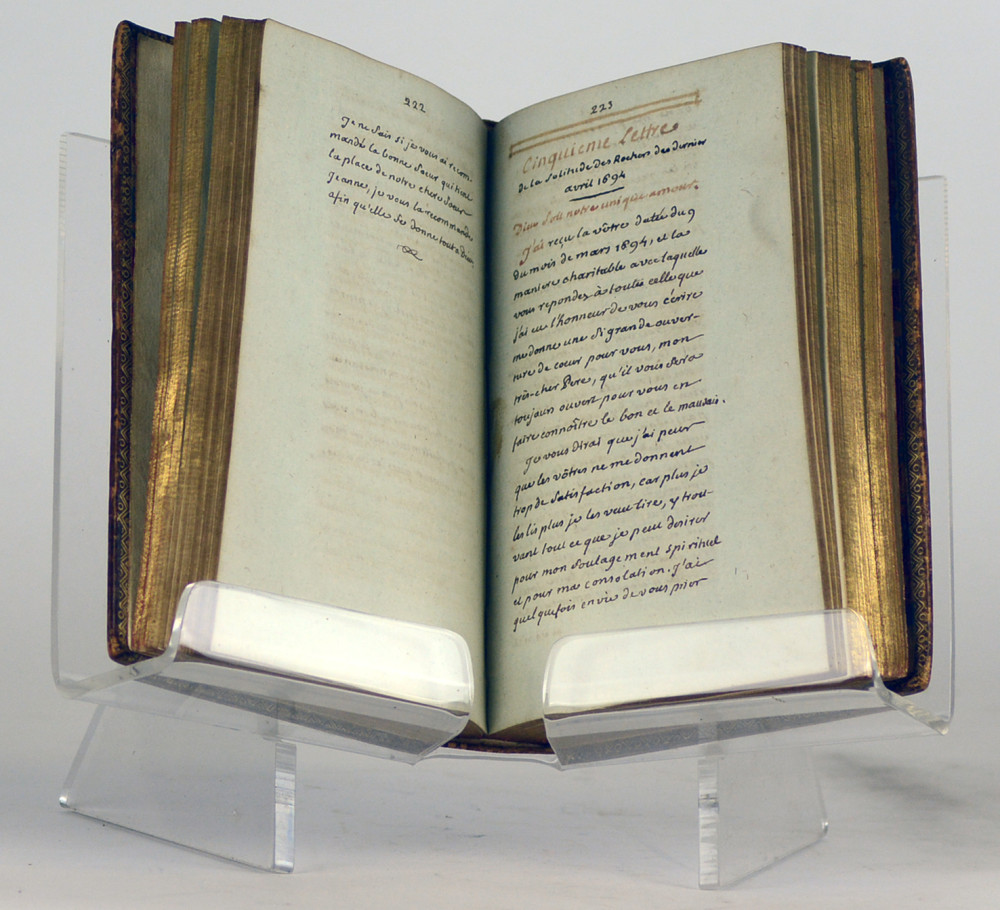 222
Je ne sais si je vous ai recom-
mandé la bonne Sœur qui tient
la place de notre chere Sœur
Jeanne, je vous la recommande
afin qu'elle se donne tout à Dieu
223
Cinquieme Lettre
de la Solitude Des Rochers du dernier
avril 1694
Dieu Soit notre unique amour.
J'ai reçu la vôtre datée du 9
du mois de mars 1694, et la
maniere charitable avec laquelle
vous repondez à toutes celle que
j'ai eu l'honneur de vous écrire
me donne une si grande ouver-
ture de cœur pour vous, mon
très-cher Pere, qu'il vous sera
toujours ouvert pour vous en
faire connoître le bon et le mauvais.
Je vous dirai que j'ai peur
que les vôtres ne me donnent
trop de Satisfaction, car plus je
les lis plus je les veux lire, y trou-
vant tout ce que je peux desirer
pour mon Soulagement Spirituel
et pour ma consolation. J'ai
quelquefois envie de vous prier